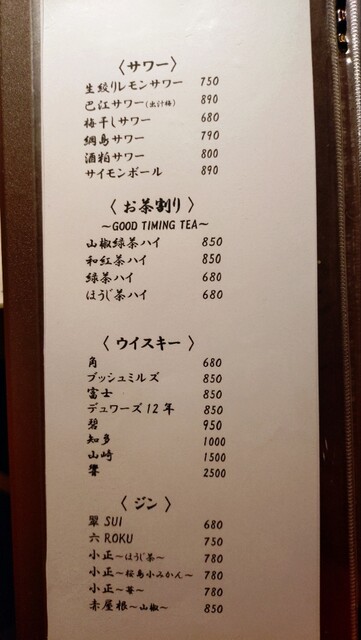 〈サワー〉
生絞りレモンサワー 750
巴江サワー(出汁梅) 890
梅干しサワー 680
綱島サワー 790
酒粕サワー 800
サイモンボール 890
〈お茶割り〉
～GOOD TIMING TEA～
山椒緑茶ハイ 850
和紅茶ハイ 850
緑茶ハイ 680
ほうじ茶ハイ 680
〈ウイスキー〉
角 680
ブッシュミルズ 850
富士 850
デュワーズ12年 850
碧 950
知多 1000
山崎 1500
響 2500
〈ジン〉
翠 SUI 680
六 ROKU 750
小正～ほうじ茶～ 780
小正～桜島小みかん～ 780
小正～苺～ 780
赤屋根～山椒～ 850